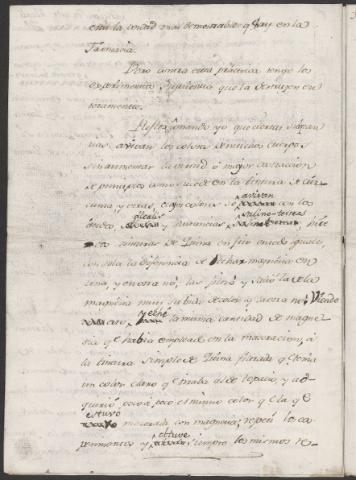 esta la verdad mas demostrable q.e hay en la
Farmacia.
Pero contra esta práctica tengo los
experimentos siguientes que la destruyen en-
teramente.
Reflexionando yo que ciertas substan
cias, avivan los colores de muchos cuerpos
sin aumentar la virtud ó mayor extraccion
de principios como sucede en la tintura de cur-
cuma, y otras, cuyos colores se avivan con los
alcalis y substancias salino-terreas, hice
tinturas de Quina en frio en todo iguales,
con sola la diferencia de echar magnesia en
una, y en otra no; las filtré y salió la de la
magnesia muy subida de color y la otra no; Viendo
esto, y eché la misma cantidad de magne
sia q.e habia empleado en la maceracion, á
la tintura simple de Quina filtrada q.e tenia
un color claro q.e tiraba al de topacio, y ad-
quirió poco á poco el mismo color q.e la q.e
estuvo macerada con magnesia; repetí los ex
perimentos y obtuve siempre los mismos re-